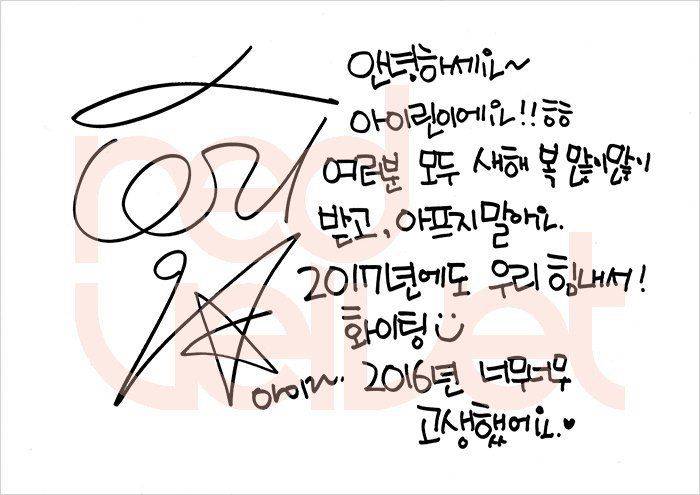 안녕하세요~
아이린이에요!! ㅎㅎ
여러분 모두 새해 복 많이많이
받고, 아프지말아요.
2017년에도 우리 힘내서!
화이팅
아이린. 2016년 너무너무
고생했어요.♥
red
velvet